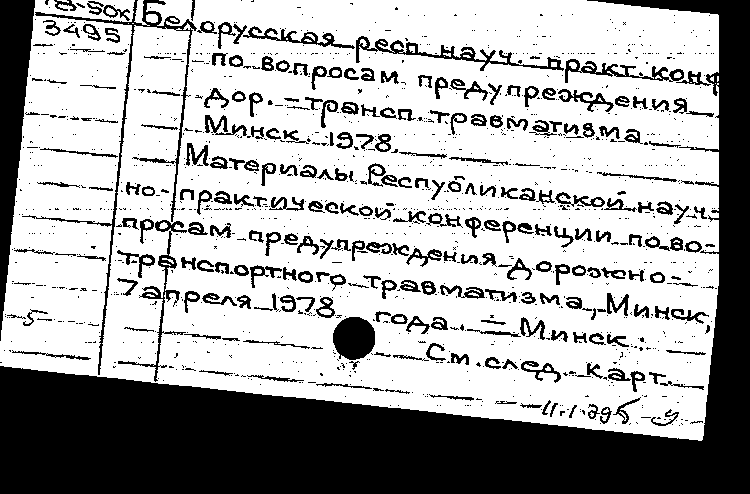 78-50к
3495
Белорусская респ. науч.-практ. конф
по вопросам предупреждения
дор.-трансп. травматизма
Минск. 1978.
Материалы Республиканской науч-
но-практической конференции по во-
просам предупреждения дорожно-
транспортного травматизма, Минск,
7 апреля 1978 года. — Минск:
5
См. след. карт.